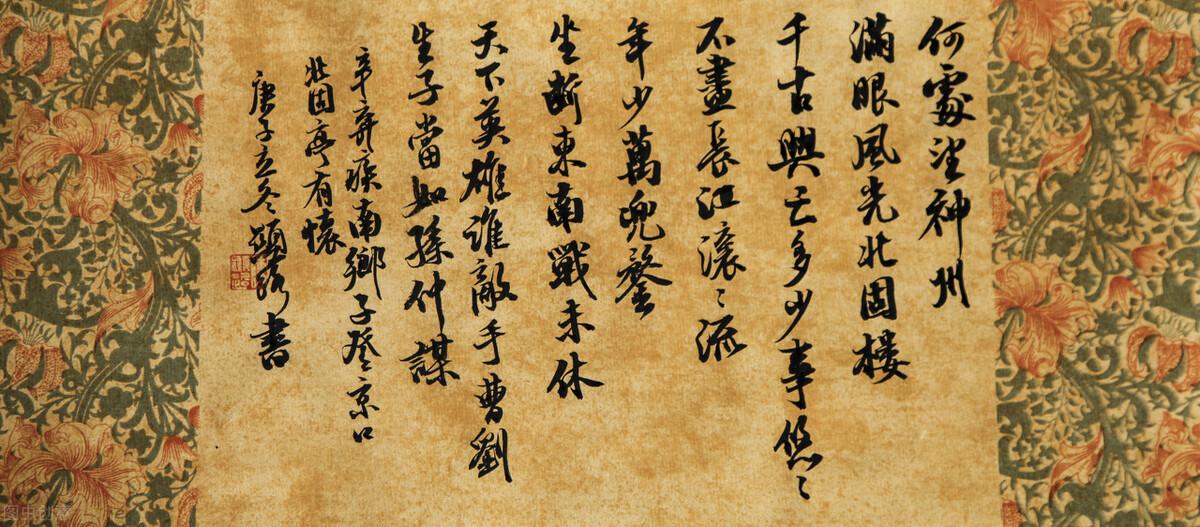 何處望神州
滿眼風光北固樓
千古興亡多少事悠〻
不盡長江滾〻流
年少萬兜鍪
坐斷東南戰未休
天下英雄誰敵手曹劉
生子當如孫仲謀
辛弃疾南鄉子登京口
北固亭有懷
庚子立冬書
图虫创意